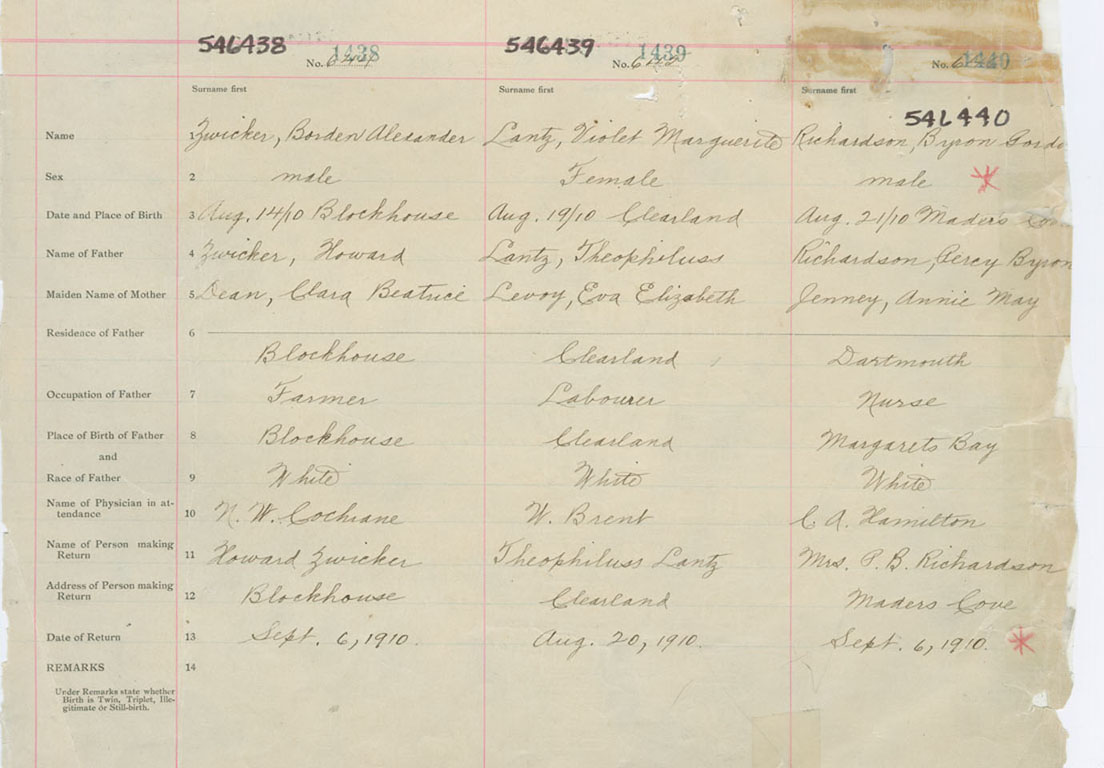 546438 1438 546439 1439 1440
No. No. 642 No.
Surname first Surname first Surname first
546440
Name 1 Zwicker, Borden Alexander Lantz, Violet Marguerite Richardson, Byron Gordo
Sex 2 male Female male
Date and Place of Birth 3 Aug. 14/10 Blockhouse Aug. 19/10 Clearland Aug. 21/10 Maders Cove
Name of Father 4 Zwicker, Howard Lantz, Theophiluss Richardson, Percy Byron
Maiden Name of Mother 5 Dean, Clara Beatrice Levoy, Eva Elizabeth Jenney, Annie May
Residence of Father 6
Blockhouse Clearland Dartmouth
Occupation of Father 7 Farmer Labourer Nurse
Place of Birth of Father 8 Blockhouse Clearland Margarets Bay
and
Race of Father 9 White White White
Name of Physician in at-
tendance 10 N. W. Cochrane W. Brent C. A. Hamilton
Name of Person making
Return 11 Howard Zwicker Theophiluss Lantz Mrs. P. B. Richardson
Address of Person making
Return 12 Blockhouse Clearland Maders Cove
Date of Return 13 Sept. 6, 1910. Aug. 20, 1910. Sept. 6, 1910.
REMARKS 14
Under Remarks state whether
Birth is Twin, Triplet, Ille-
gitimate or Still-birth.